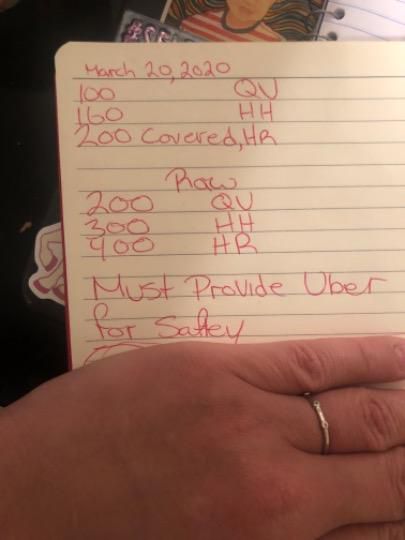 March 20, 2020
100 QV
160 HH
200 Covered, HR
Raw
200 QV
300 HH
400 HR
Must Provide Uber
for Saftey